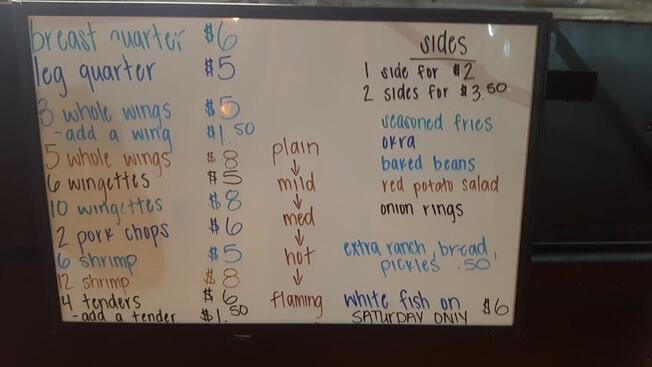 breast quarter $6
leg quarter $5
3 whole wings $5
-add a wing $1.50
5 whole wings $8
6 wingettes $5
10 wingettes $8
2 pork chops $6
6 shrimp $5
12 shrimp $8
4 tenders $6
-add a tender $1.50
plain
mild
med
hot
flaming
sides
1 side for $2
2 sides for $3.50
seasoned fries
okra
baked beans
red potato salad
onion rings
extra ranch, bread,
pickles .50
white fish on $6
SATURDAY ONLY